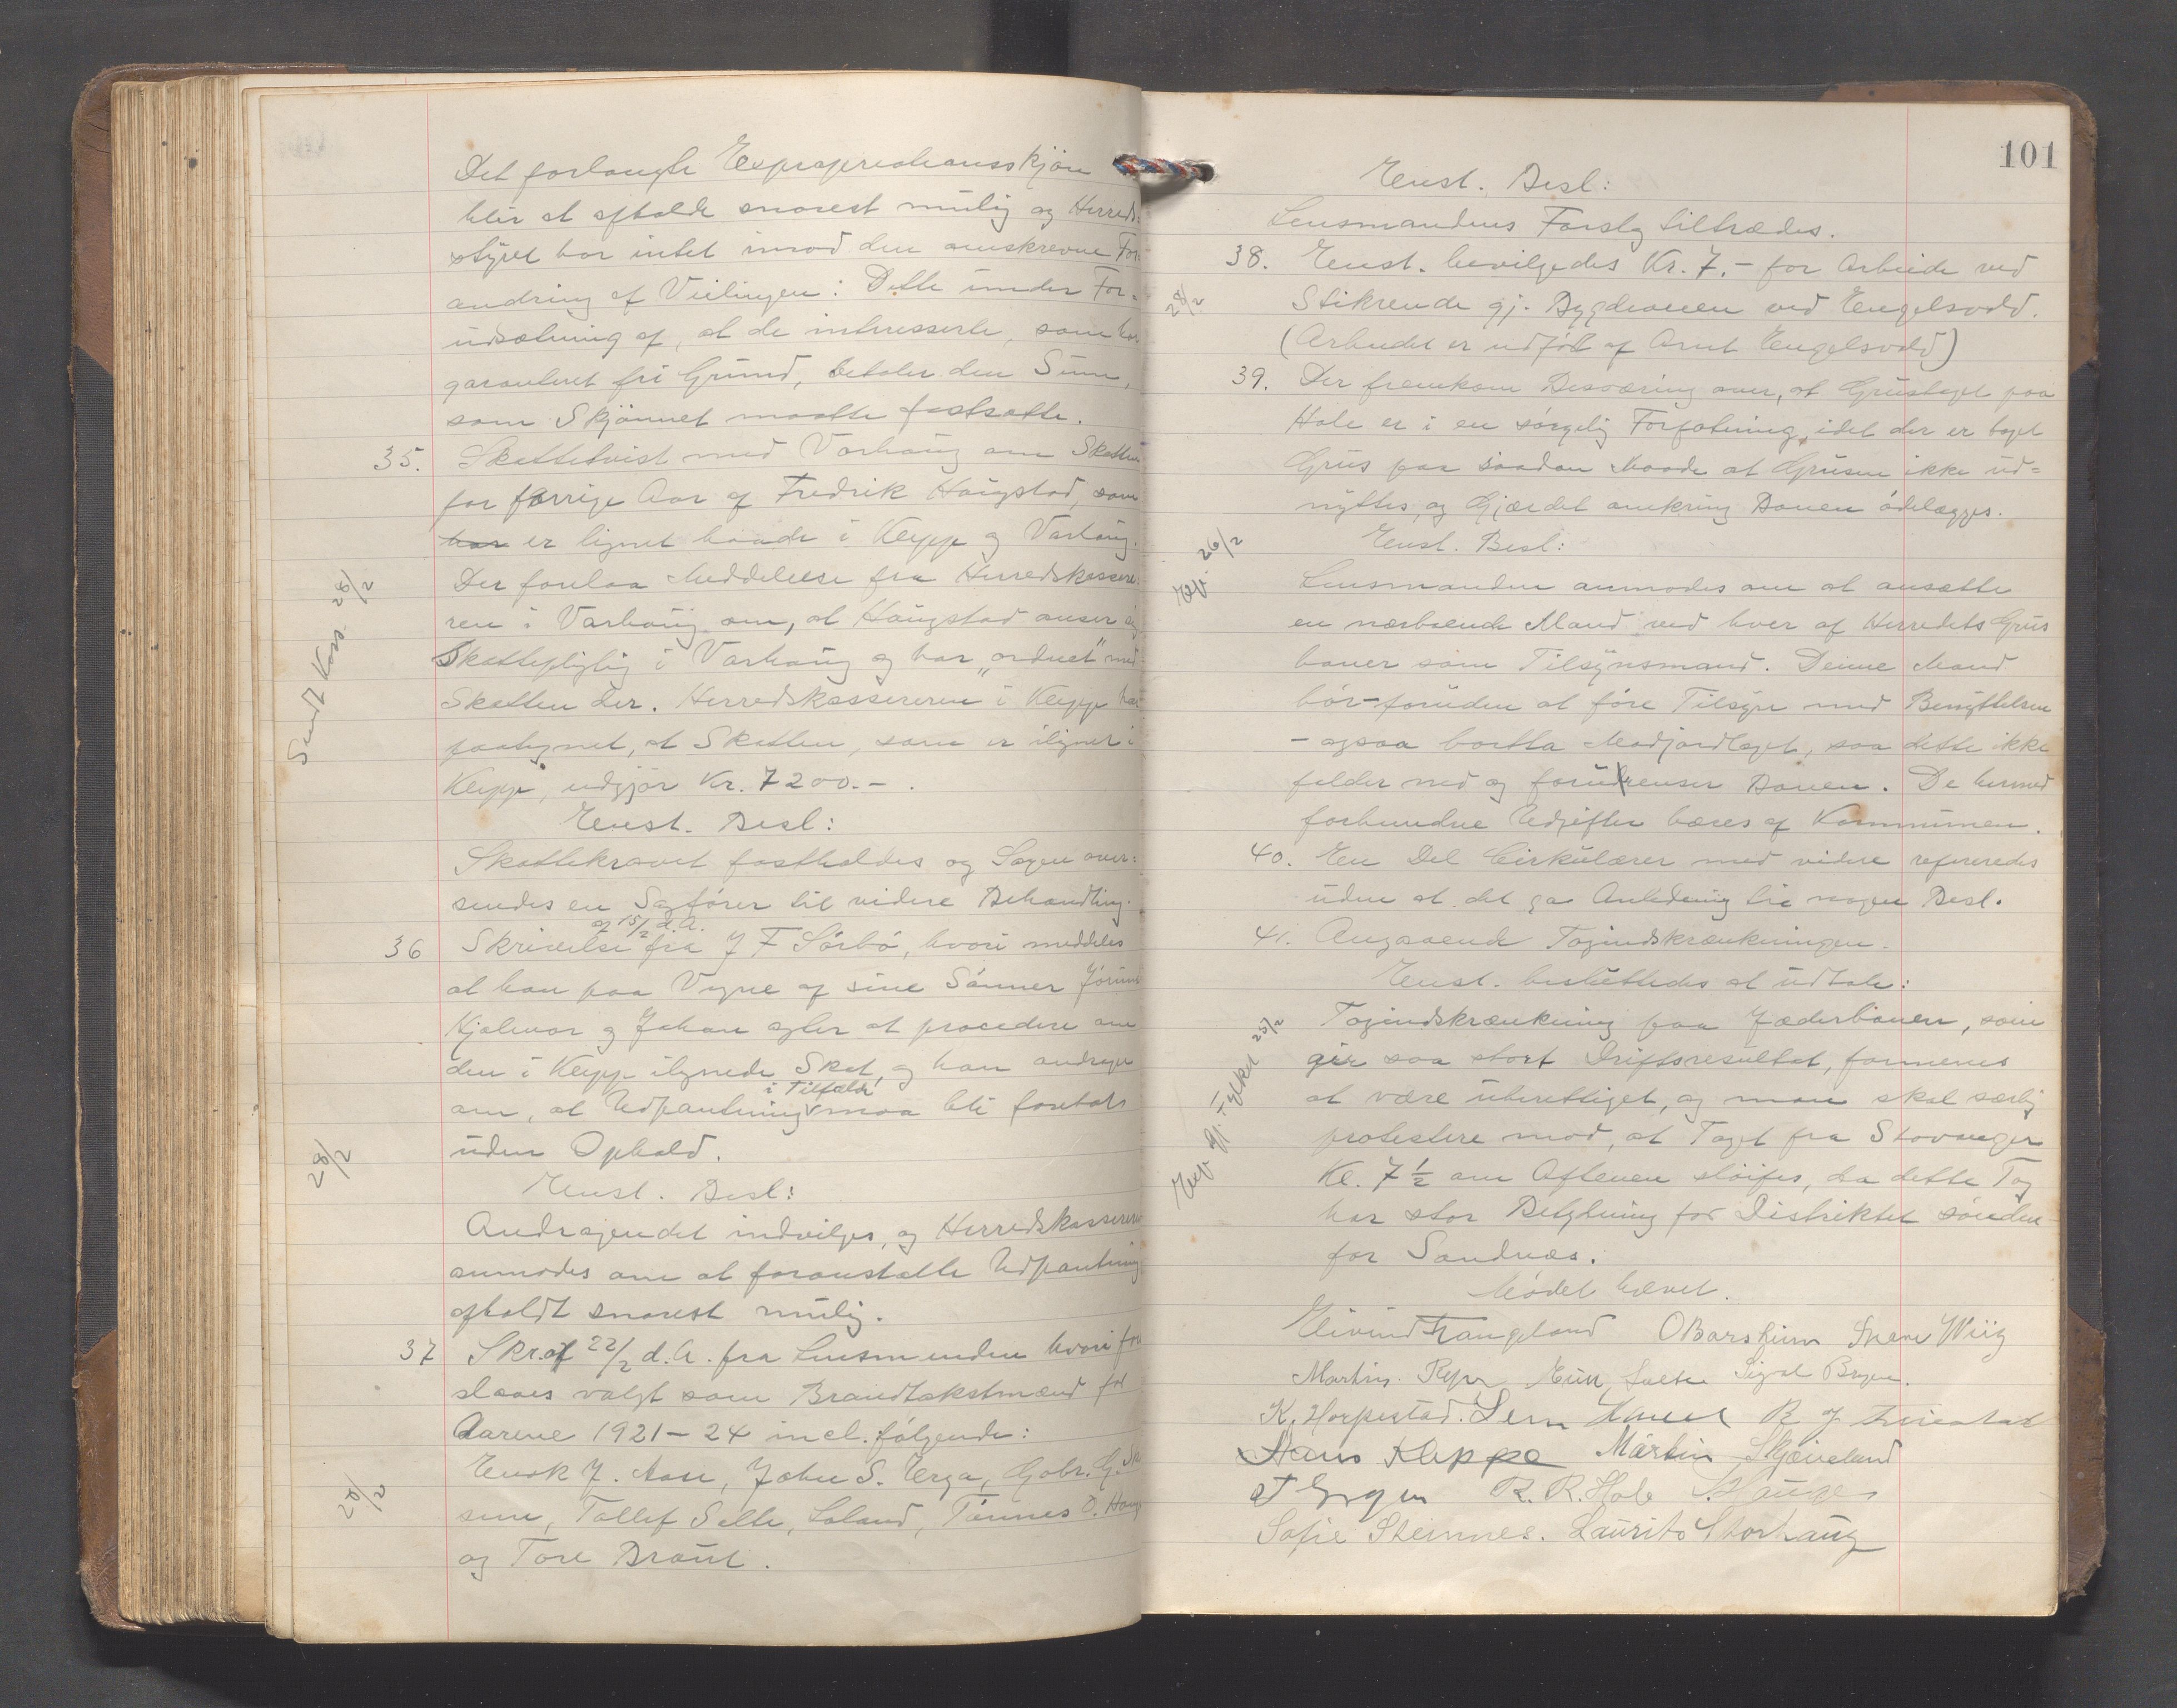 Det forlangte Expropriationsskjön
blir at afholde snarest mulig og Herreds=
styret har intet imod den omskrevne For=
andring af Veilinjen: Dette under For=
udsætning af, at de interesserte, som har
garanteret fri Grund, betaler den Sum,
som Skjønnet maatte fastsætte.
35. Skattetvist med Varhaug om Skatten
for forrige Aar af Fredrik Haugstad, som
har er lignet baade i Klepp og Varhaug.
Der forelaa Meddelelse fra Herredskassere=
ren i Varhaug om, at Haugstad anser sig
Skattepligtig i Varhaug og har „ordnet" med
Skatten der. Herredskassereren i Klepp har
paategnet, at Skatten, som er ilignet i
Klepp, udgjør Kr. 7200.-.
Sendt Kass. 28/2
Enst. Besl:
Skattekravet fastholdes og Sagen over=
sendes en Sagfører til videre Behandling.
af 15/2 d.A.
36 Skrivelse fra J F Sörbö, hvori meddeles
at han paa Vegne af sine Sønner
Hjalmar og Johan agter at procedere om
den i Klepp ilignede Skat, og han andrager
i Tilfælde
om, at Udpantning maa bli foretat
uden Ophold.
28/2
Enst. Besl:
Andragendet indvilges, og Herredskassereren
anmodes om at foranstalte Udpantning
afholdt snarest mulig.
37 Skr. af 22/2 d.A. fra Lensmanden hvori fore
slaaes valgt som Brandtakstmænd for
Aarene 1921-24 incl. følgende:
Enok J. Aase, John S. Erga, Gabr. G.
sene, Tollef Salte, Laland, Tønnes O. Haug
og Tore Braut.
28/2
101
Enst. Besl:
Lensmandens Forslg tiltrædes.
38. Enst. bevilgedes Kr. 7.- for Arbeide ved
28/2
Stikrende gj. Bygdeveien ved Engelsvold.
(Arbeidet er udført af Arnt Engelsvold)
39. Der fremkom Besværing over, at Grustaget paa
Hole er i en sørgelig Forfatning, idet der er taget
Grus paa saadan Maade at Grusen ikke ud=
nyttes, og Gjærdet omkring Banen ødelægges.
Enst. Besl:
Eft. 26/2
Lensmanden anmodes om at ansætte
en nærboende Mand ved hver af Herredets Grus
baner som Tilsynsmand. Denne Mand
bør - foruden at føre Tilsyn med Benyttelsen
- ogsaa bortta Madjordlaget, saa dette ikke
falder ned og forurenser Banen. De hermed
forbundne Udgifter bæres af Kommunen.
40. En Del Cirkulærer med videre refereredes
uden at det ga Anledning til nogen Besl.
41. Angaaende Togindskrænkningen.
Enst. besluttedes at udtale:
Eft. gj. Fylket 25/2
Togindskrænkning paa Jæderbanen, som
gir saa stort Driftsresultat, formenes
at være uberettiget, og man skal særlig
protestere mod, at Toget fra Stavanger
Kl. 7½ om Aftenen sløifes, da dette Tog
har stor Betydning for Distriktet sønden
for Sandnæs.
Mødet hævet.
Eivind Tangeland O Barsheim Wiig
Martin Salte Sigval Bryne.
K. Horpestad.
Hans Kleppe Martin Skjæveland
R. R. Hole S. Hauge
Sofie Steinnes. Laurits Storhaug